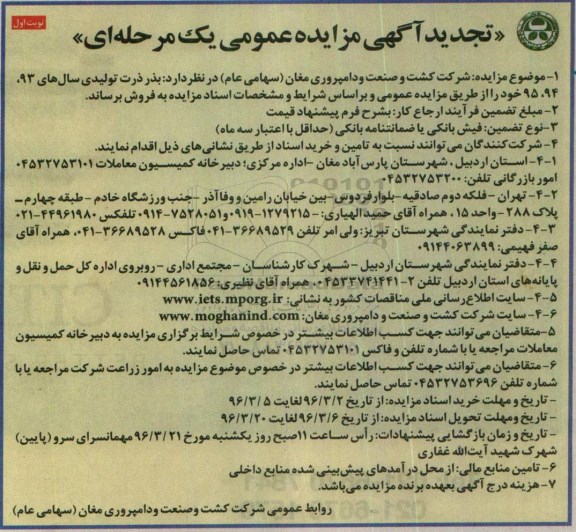 نوبت اول
«تجدید آگهی مزایده عمومی یک مرحله‌ای»
۱- موضوع مزایده: شرکت کشت و صنعت و دامپروری مغان (سهامی عام) در نظر دارد: بذر ذرت تولیدی سال‌های ۹۳،
۹۴، ۹۵ خود را از طریق مزایده عمومی و براساس شرایط و مشخصات اسناد مزایده به فروش برساند.
۲- مبلغ تضمین فرآیند ارجاع کار: بشرح فرم پیشنهاد قیمت
۳- نوع تضمین: فیش بانکی یا ضمانتنامه بانکی (حداقل با اعتبار سه ماه)
۴- شرکت کنندگان می‌توانند نسبت به تامین و خرید اسناد از طریق نشانی‌های ذیل اقدام نمایند.
۴-۱- استان اردبیل، شهرستان پارس‌آباد مغان - اداره مرکزی؛ دبیرخانه کمیسیون معاملات ۰۴۵۳۲۷۵۳۱۰۱
امور بازرگانی تلفن: ۰۴۵۳۲۷۵۳۲۰۰
۴-۲- تهران - فلکه دوم صادقیه - بلوار فردوس - بین خیابان رامین و وفاآذر - جنب ورزشگاه خادم - طبقه چهارم -
پلاک ۲۸۸ - واحد ۱۵، همراه آقای حمید الهیاری: ۱۲۷۹۲۱۵-۰۹۱۹ و ۷۵۲۸۰۵۱-۰۹۱۴ تلفکس ۴۴۹۶۱۹۸۰-۰۲۱
۴-۳- دفتر نمایندگی شهرستان تبریز: ولی امر تلفن ۳۶۶۸۹۵۲۹-۰۴۱ فاکس ۳۶۶۸۹۵۲۸-۰۴۱، همراه آقای
صفر فهیمی: ۰۹۱۴۴۰۶۳۸۹۹
۴-۴- دفتر نمایندگی شهرستان اردبیل - شهرک کارشناسان - مجتمع اداری - روبروی اداره کل حمل و نقل و
پایانه‌های استان اردبیل تلفن ۲-۰۴۵۳۳۷۴۱۴۴۱، همراه آقای نظیری: ۰۹۱۴۴۵۶۱۸۵۶
۴-۵- سایت اطلاع رسانی ملی مناقصات کشور به نشانی: www.iets.mporg.ir
۴-۶- سایت شرکت کشت و صنعت و دامپروری مغان: www.moghanind.com
۵- متقاضیان می‌توانند جهت کسب اطلاعات بیشتر در خصوص شرایط برگزاری مزایده به دبیرخانه کمیسیون
معاملات مراجعه یا با شماره تلفن و فاکس ۰۴۵۳۲۷۵۳۱۰۱ تماس حاصل نمایند.
۶- متقاضیان می‌توانند جهت کسب اطلاعات بیشتر در خصوص موضوع مزایده به امور زراعت شرکت مراجعه یا با
شماره تلفن ۰۴۵۳۲۷۵۳۶۹۶ تماس حاصل نمایند.
- تاریخ و مهلت خرید اسناد مزایده: از تاریخ ۹۶/۳/۲ لغایت ۹۶/۳/۵
- تاریخ ومهلت تحویل اسناد مزایده: از تاریخ ۹۶/۳/۶ لغایت ۹۶/۳/۲۰
- تاریخ و زمان بازگشایی پیشنهادات: رأس ساعت ۱۱ صبح روز یکشنبه مورخ ۹۶/۳/۲۱ مهمانسرای سرو (پایین)
شهرک شهید آیت‌الله غفاری
۶- تامین منابع مالی: از محل درآمدهای پیش‌بینی شده منابع داخلی
۷- هزینه درج آگهی بعهده برنده مزایده می‌باشد.
روابط عمومی شرکت کشت وصنعت ودامپروری مغان (سهامی عام)